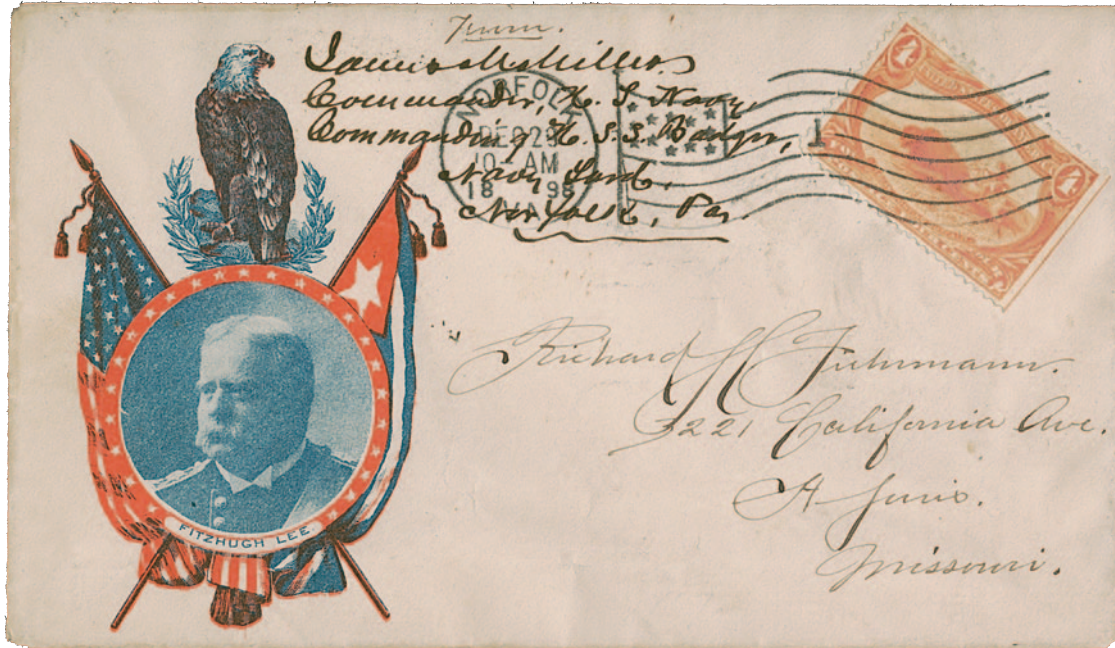 From.
James M. Miller,
Commander, U. S. Navy,
Commanding U. S. S. Badger,
Navy Yard,
Norfolk, Va.
NORFOLK
DEC 2
10 AM
18 98
1
4
4
FITZHUGH LEE.
Richard H Fuhrmann.
3221 California Ave.
St Louis.
Missouri.